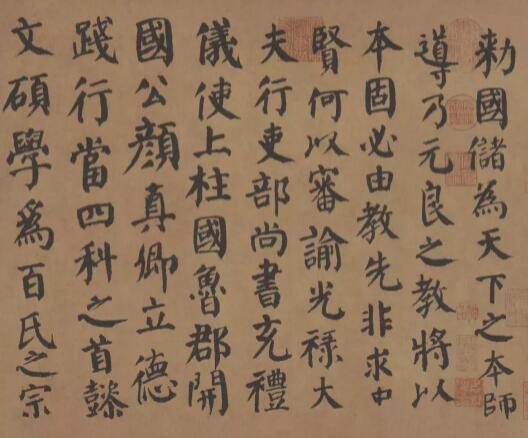 勅國儲為天下之本師
導乃元良之教將以
本固必由教先非求中
賢何以審諭光祿大
夫行吏部尚書充禮
儀使上柱國魯郡開
國公顏真卿立德
踐行當四科之首懿
文碩學爲百氏之宗